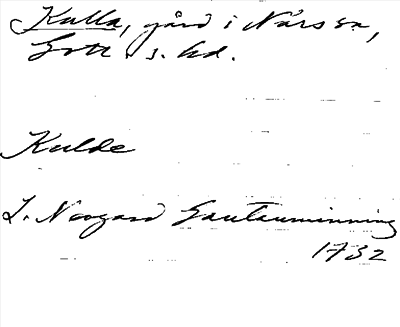 Kulla, gård i Närs sn,
Gotl. s. hd.
Kulde
L. Neogard Gautauminning
1732